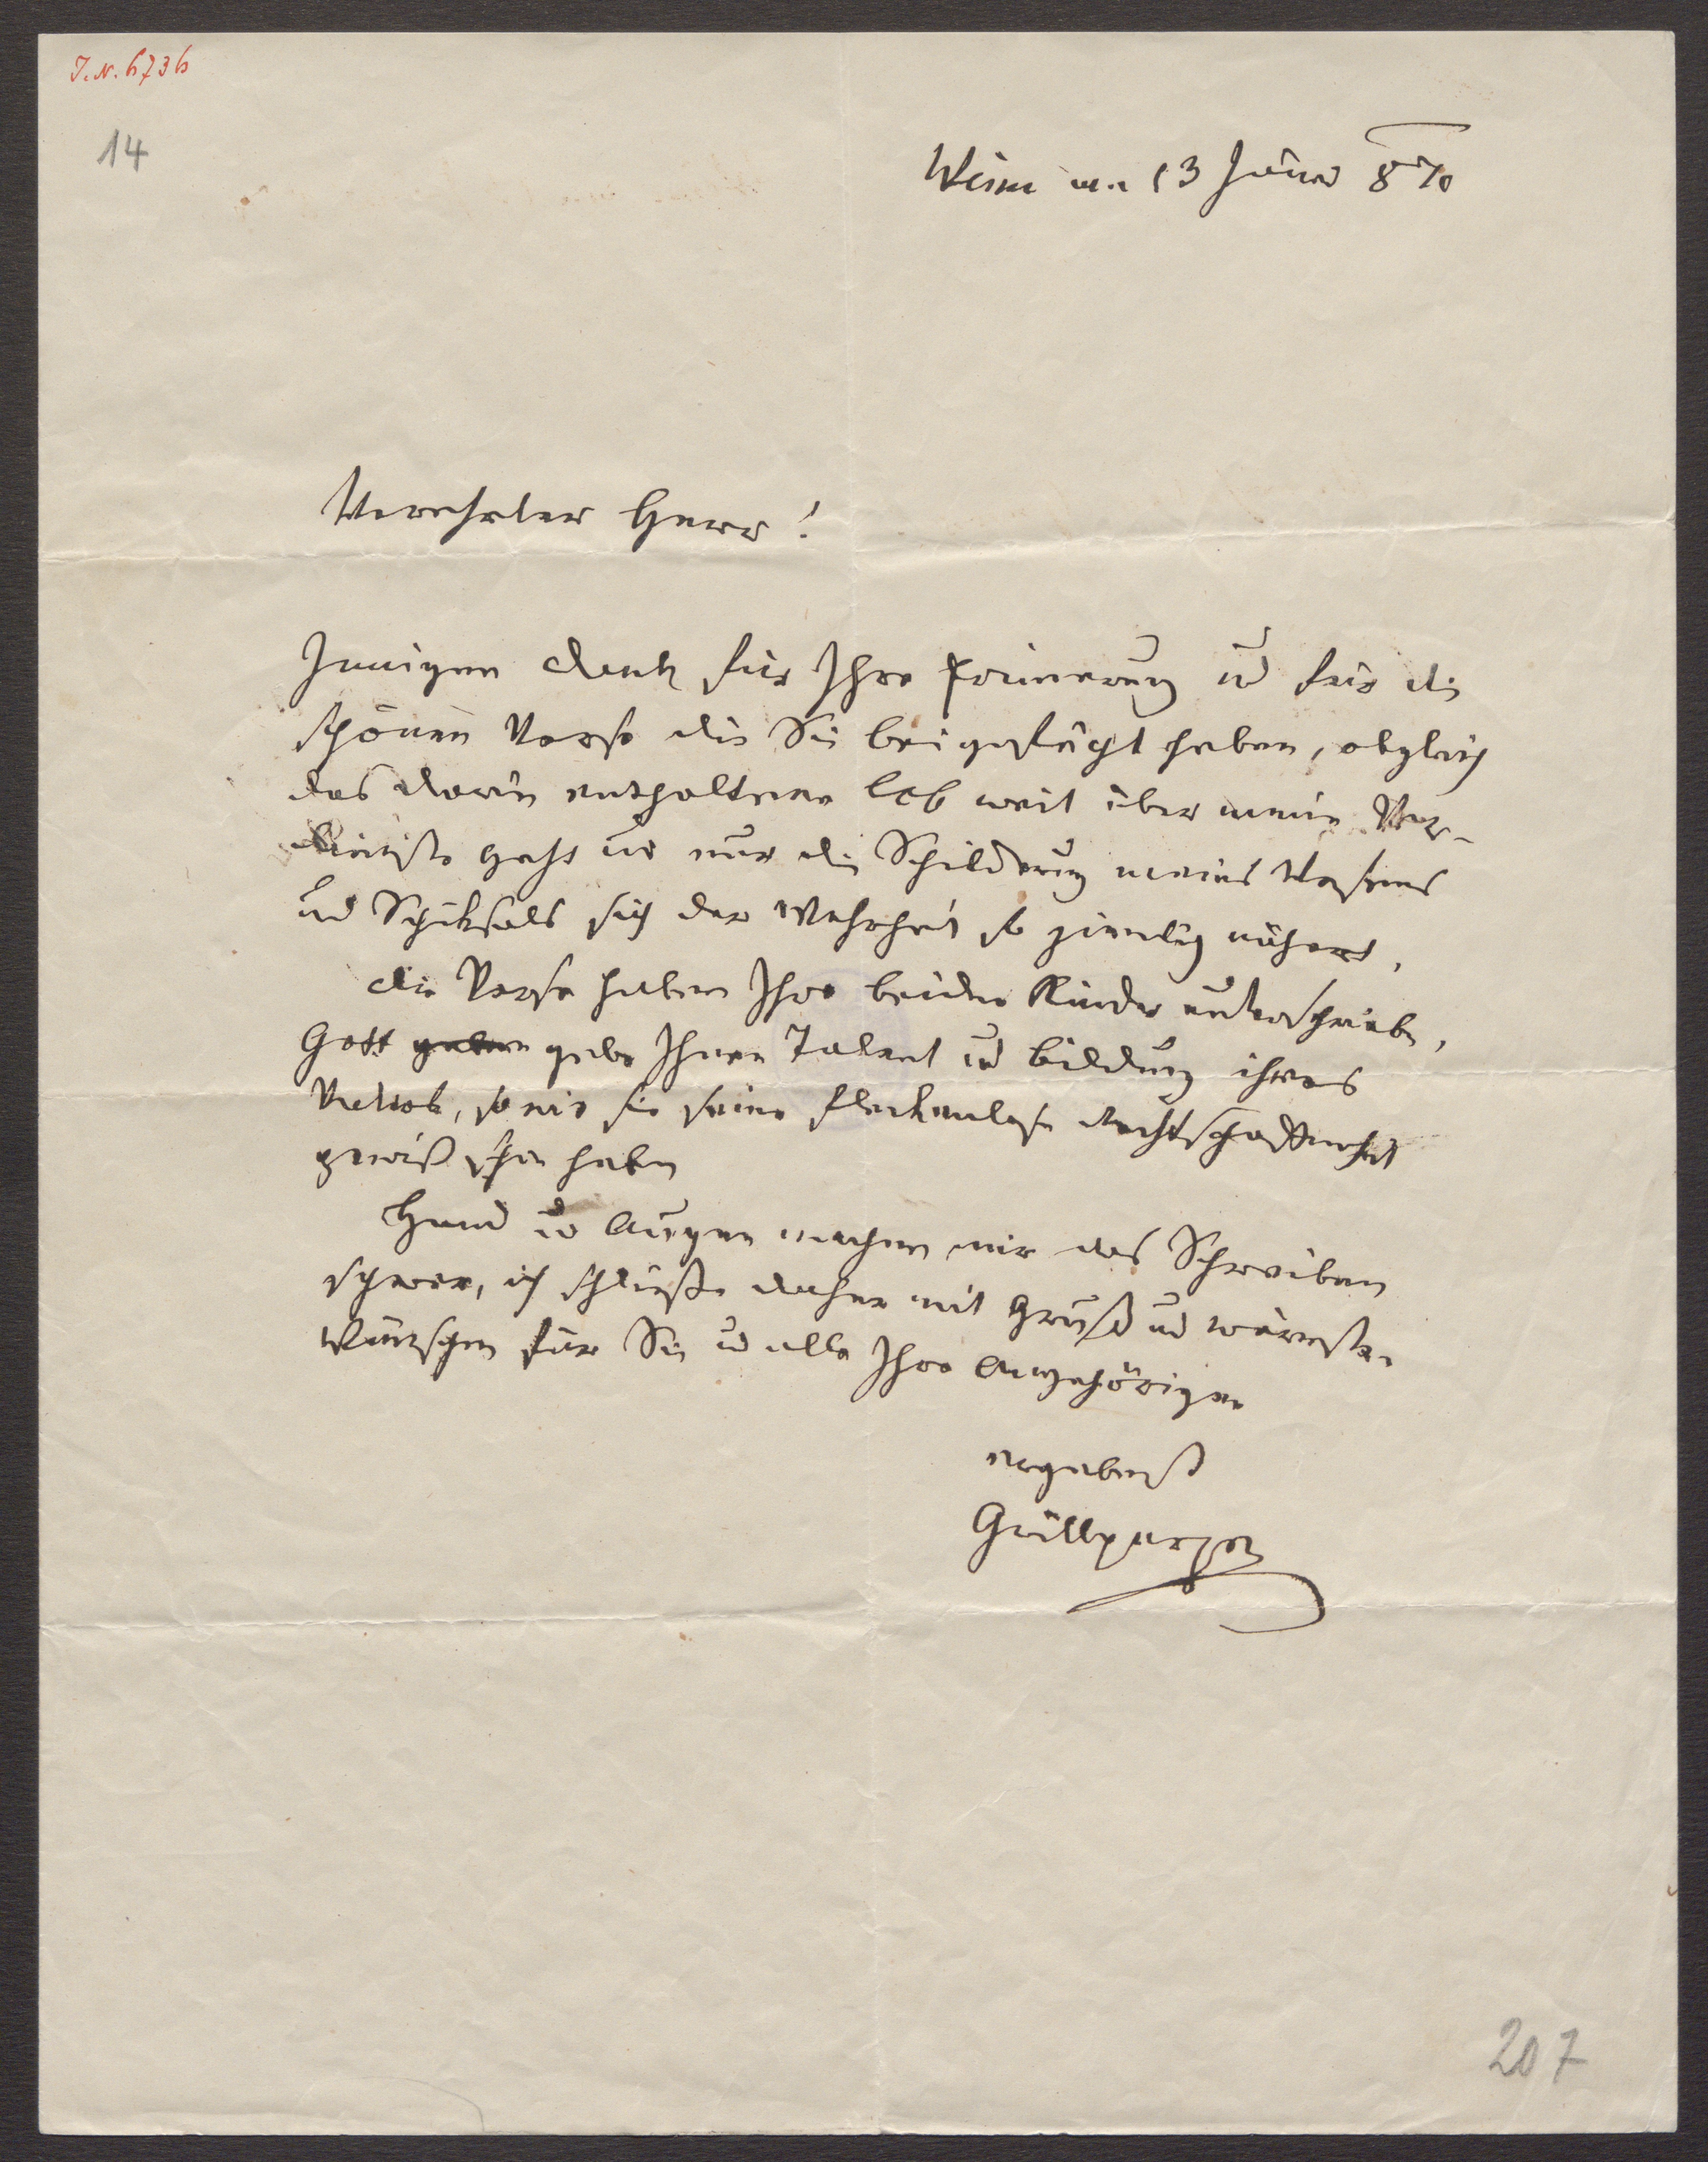 I.N. 6736
14
Wien am 13 Jäner 870
Verehrter Herr!
Innigen Dank für Ihre Erinnerung und für die
schönen Verse die Sie beigefügt haben, obgleich
das darin enthaltene Lob weit über meine Ver-
dienste geht und nur die Schilderung meines Wesens
und Schiksals sich der Wahrheit so ziemlich nähert.
Die Verse haben Ihre beiden Kinder unterschrieben,
Gott geben gebe Ihnen Talent und Bildung ihres
Vaters, so wie sie seine fleckenlose Rechtschaffenheit
gewiß schon haben
Hand und Augen machen mir das Schreiben
schwer, ich schließe daher mit Gruß und wärmsten
Wünschen für Sie und alle Ihre Angehörigen
ergebenst
Grillparzer
207